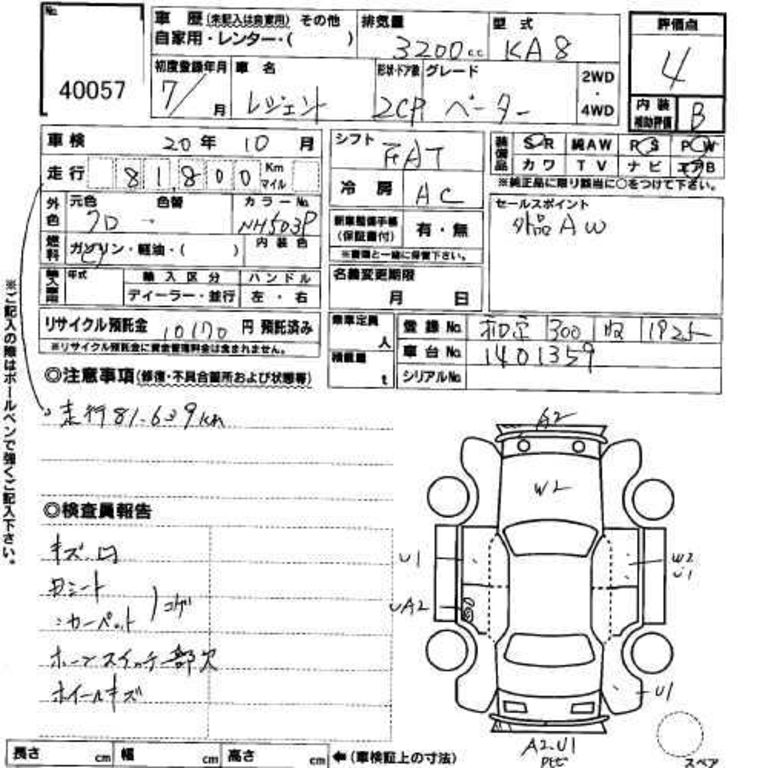 No.
40057
車 歴 (未記入は自家用) その他
自家用・レンター・( )
排気量
3200cc
型 式
KA8
評価点
4
内装補助評価 B
初度登録年月
7/ 月
車 名
レジェンド
形状・ドア数
2CP
グレード
ベーター
2WD
・
4WD
車検 20年 10月
走行 81,800 Km マイル
シフト
FAT
冷房 AC
装備品
SR 純AW PS PW
カワ TV ナビ エアB
※純正品に限り該当に○をつけて下さい。
外色
元色 色替
クロ -
カラーNo.
NH503P
燃料 ガソリン・軽油・( )
内装色
新車整備手帳
(保証書付) 有・無
※書類と一緒に保管下さい。
セールスポイント
外品AW
輸入車用
年式
輸入区分
ディーラー・並行
ハンドル
左・右
名義変更期限
月 日
リサイクル預託金 10170 円 預託済み
※リサイクル預託金に資金管理料金は含まれません。
乗車定員
人
積載量
t
登録No. 和泉 300 ね 1925
車台No. 1401359
シリアルNo.
◎注意事項(修復・不具合箇所および状態等)
走行81.639km
※ご記入の際はボールペンで強くご記入下さい。
◎検査員報告
キズ 凹
シート
カーペット
コゲ
ホーンスイッチ一部欠
ホイールキズ
A2
W2
U1
W2
U1
UA2
U1
A2.U1
スペア
長さ cm 幅 cm 高さ cm ←(車検証上の寸法)